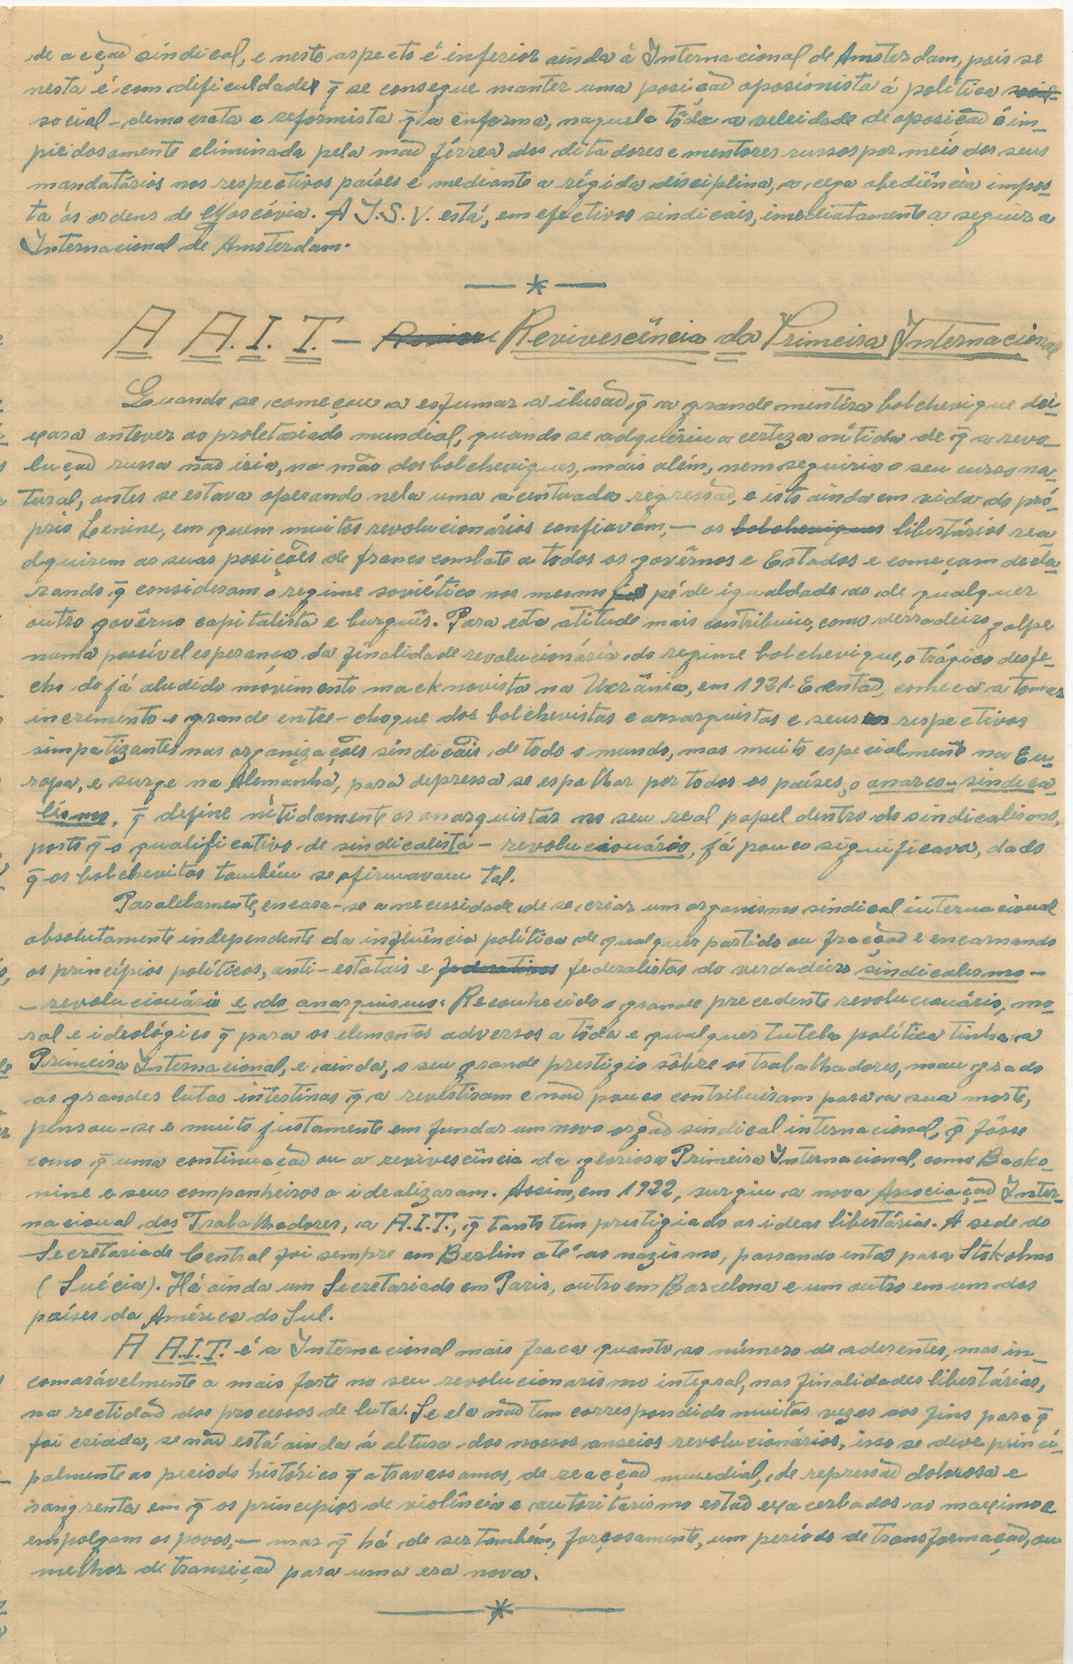 de acção sindical, e neste aspecto é inferior ainda à Internacional de Amsterdam, pois se
nesta é com dificuldade q̃ se consegue manter uma posição oposicionista á política
social-democrata e reformista q̃ a enforma, naquela tôda a veleidade de oposição é im-
piedosamente eliminada pela mão férrea dos ditadores e mentores russos por meio dos seus
mandatários nos respectivos países e mediante a rígida disciplina, a cega obediência impos-
ta ás ordens de Moscóvia. A I.S.V. está, em efectivos sindicais, imediatamente a seguir a
Internacional de Amsterdam.
A A.I.T. — Revivescência da Primeira Internacional
Quando se começou a esfumar a ilusão, q̃ a grande mentira bolchevique dei-
xara antever ao proletariado mundial, quando se adquiriu a certeza nítida de q̃ a revo-
lução russa não iria, na mão dos bolcheviques, mais além, nem seguiria o seu curso na-
tural, antes se estava operando nela uma acentuada regressão, e isto ainda em vida do pró-
prio Lenine, em quem muitos revolucionários confiavam, — os bolcheviques libertários rea-
dquirem as suas posições de franco combate a todos os govêrnos e Estados e começam decla-
rando q̃ consideram o regime soviético no mesmo pé de igualdade ao de qualquer
outro govêrno capitalista e burguês. Para esta atitude mais contribuiu, como derradeiro golpe
numa possível esperança da finalidade revolucionária do regime bolchevique, o trágico desfe-
cho do já aludido movimento macknovista na Ukrânia, em 1921. E então, começa a tomar
incremento o grande entre-choque dos bolchevistas e anarquistas e seus respectivos
simpatizantes nas organizações sindicais de todo o mundo, mas muito especialmente na Eu-
ropa, e surge na Alemanha, para depressa se espalhar por todos os países, o anarco-sindica-
lismo, q̃ define nitidamente os anarquistas no seu real papel dentro do sindicalismo,
posto q̃ o qualificativo de sindicalista-revolucionário, já pouco significava, dado
q̃ os bolchevistas também se afirmavam tal.
Paralelamente, encara-se a necessidade de se criar um organismo sindical internacional
absolutamente independente da influência política de qualquer partido ou fracção e encarnando
os princípios políticos, anti-estatais e federativos federalistas do verdadeiro sindicalismo-
-revolucionário e do anarquismo. Reconhecido o grande precedente revolucionário, mo-
ral e ideológico q̃ para os elementos adversos a tôda e qualquer tutela política tinha a
Primeira Internacional, e ainda, o seu grande prestígio sôbre os trabalhadores, mau grado
as grandes lutas intestinas q̃ a revestiram e não pouco contribuiram para a sua morte,
pensou-se e muito justamente em fundar um novo orgão sindical internacional, q̃ fôsse
como q̃ uma continuação ou a revivescência da gloriosa Primeira Internacional, como Backo-
nine e seus companheiros a idealizaram. Assim, em 1922, surgiu a nova Associação Inter-
nacional dos Trabalhadores, a A.I.T., q̃ tanto tem prestigiado as ideas libertárias. A sede do
Secretariado Central foi sempre em Berlim até ao nazismo, passando então para Stokolmo
(Suécia). Há ainda um Secretariado em Paris, outro em Barcelona e um outro em um dos
países da América do Sul.
A A.I.T. é a Internacional mais fraca quanto ao número de aderentes, mas in-
comarávelmente a mais forte no seu revolucionarismo integral, nas finalidades libertárias,
na rectidão dos processos de luta. Se ela não tem correspondido muitas vezes aos fins para q̃
foi criada, se não está ainda á altura dos nossos anseios revolucionários, isso se deve princi-
palmente ao período histórico q̃ atravessamos, de reacção mundial, de repressão dolorosa e
sangrenta em q̃ os princípios de violência e autoritarismo estão exacerbados ao maximo e
empolgam os povos, — mas q̃ há de ser também, forçosamente, um período de transformação, ou
melhor de transição para uma era nova.